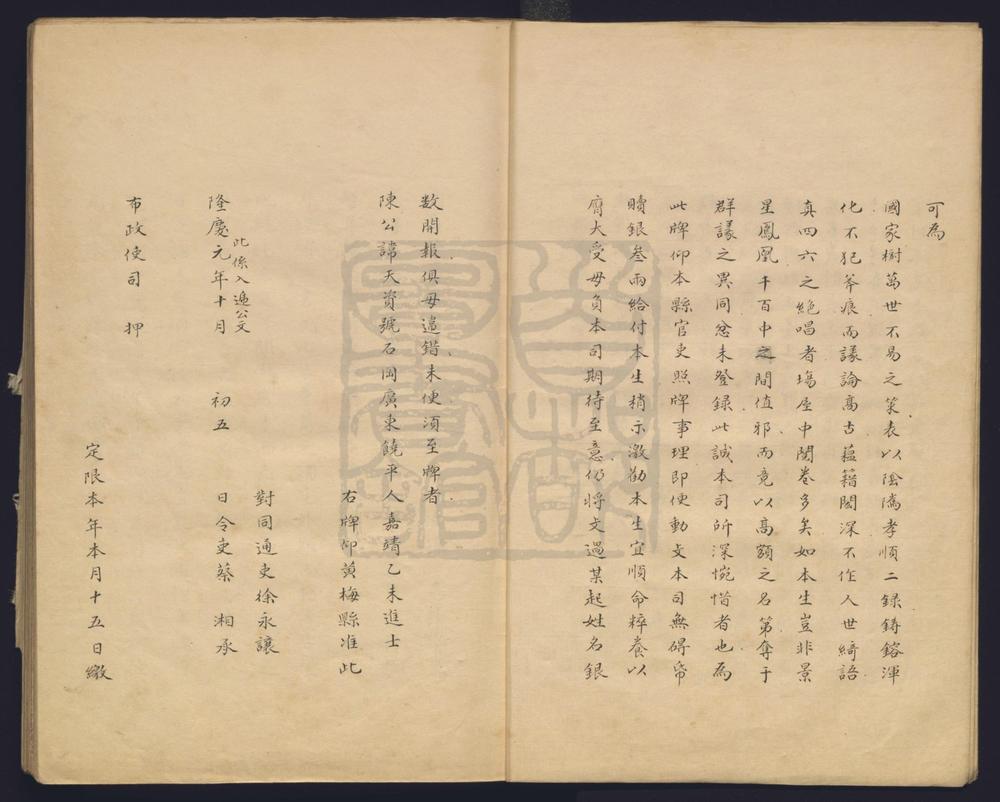 可為
國家樹萬世不易之策表以陰隲孝順二錄鑄鎔渾
化不犯斧痕而議論高古蘊藉閎深不作人世綺語
真四六之絕唱者塲屋中閱卷多矣如本生豈非景
星鳳凰千百中之間值邪而竟以高額之名第奪于
群議之異同忿未登錄此誠本司所深惋惜者也為
此牌仰本縣官吏照牌事理即便動支本司無碍帋
贖銀叁兩給付本生稍示激勸本生宜順命粹養以
膺大受毋負本司期待至意仍將支過某起姓名銀
数開報俱毋違錯未便須至牌者
陳公諱天資號石岡廣東饒平人嘉靖乙未進士
右牌仰黃梅縣准此
對同通吏徐永讓
此係入遞公文
隆慶元年十月 初五 日令吏蔡 湘承
布政使司 押
定限本年本月十五日繳